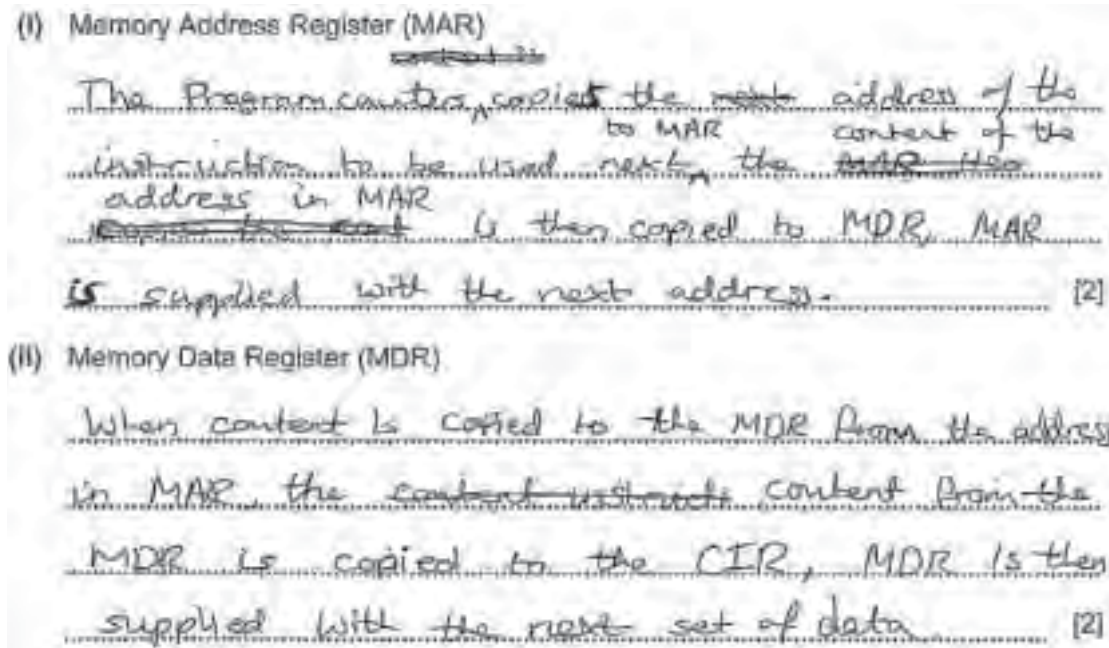 (i) Memory Address Register (MAR)
The Program counter copies the next address of the
to MAR content of the
instruction to be used next, the MAR the
address in MAR
is then copied to MDR, MAR
is supplied with the next address. [2]
(ii) Memory Data Register (MDR)
When content is copied to the MDR from the address
in MAR, the content content from the
MDR is copied to the CIR, MDR is then
supplied with the next set of data. [2]